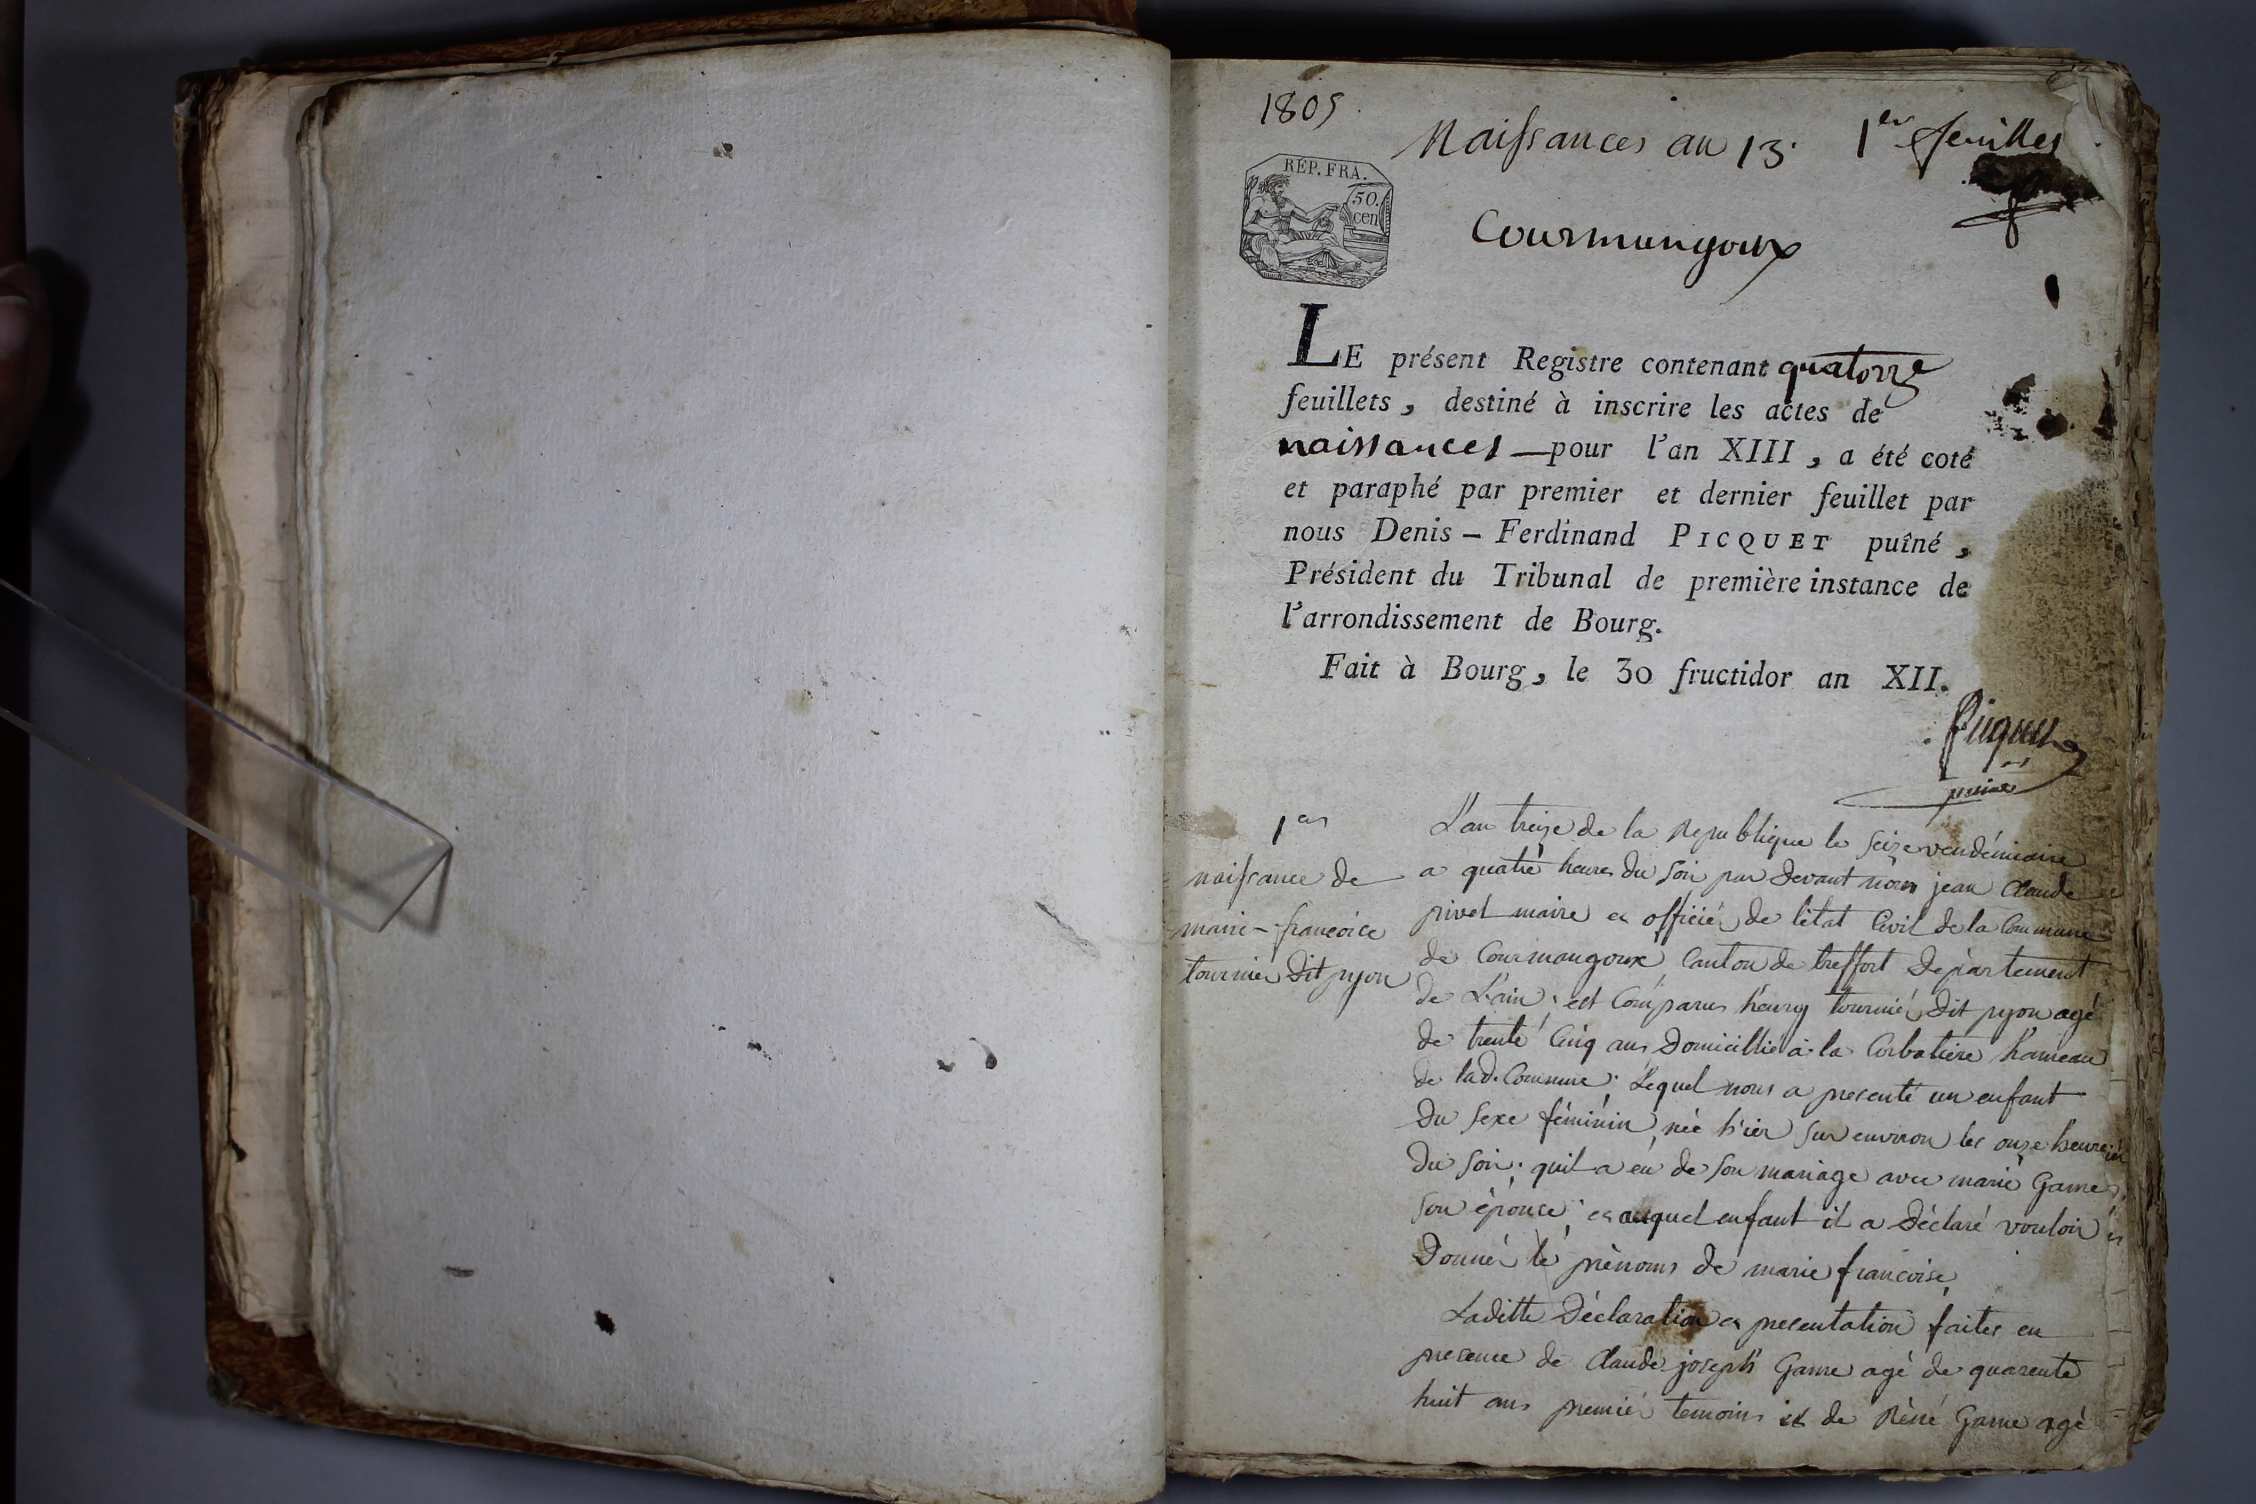 1805
Naissances an 13. 1er feuillet
RÉP. FRA.
50.
cen
Courmangoux
LE présent Registre contenant quatorze
feuillets, destiné à inscrire les actes de
naissances — pour l'an XIII, a été coté
et paraphé par premier et dernier feuillet par
nous Denis-Ferdinand PICQUET puîné,
Président du Tribunal de première instance de
l'arrondissement de Bourg.
Fait à Bourg, le 30 fructidor an XII.
Picquet
puiné
1er
naissance de
marie-francoice
tournier Dit pyon
L'an treize de la Republique le seize vendémiaire
a quatré heures du soir par devant nous jean Claude
pivet maire et officiér de l'état Civil de la Commune
de Courmangoux Canton de treffort Département
de L'ain; est Comparus henry tourniér Dit pyon agé
de trenté Cinq ans Domicillié à la Corbatiere hameau
de lad. Commune; Lequel nous a presenté un enfant
du sexe féminin, née h'ier sur environ les onze heures
du soir; quil a eu de son mariage avec marie Game
son épouse; et auquel enfant il a déclaré vouloir
Donnér lé prénoms de marie francoise
Laditte Déclaration et presentation faites en
presence de Claude joseph Game agé de quarente
huit ans premiér temoins et de Réné Game agé